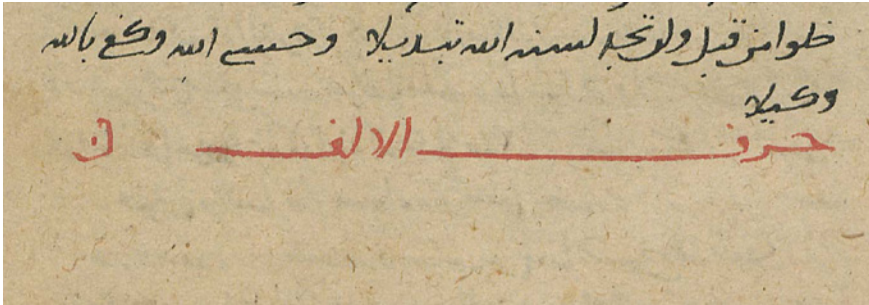 خلوا من قبل ولن تجد لسنة الله تبديلا وحسبي الله وكفى بالله
وكيلا
حرف الالف